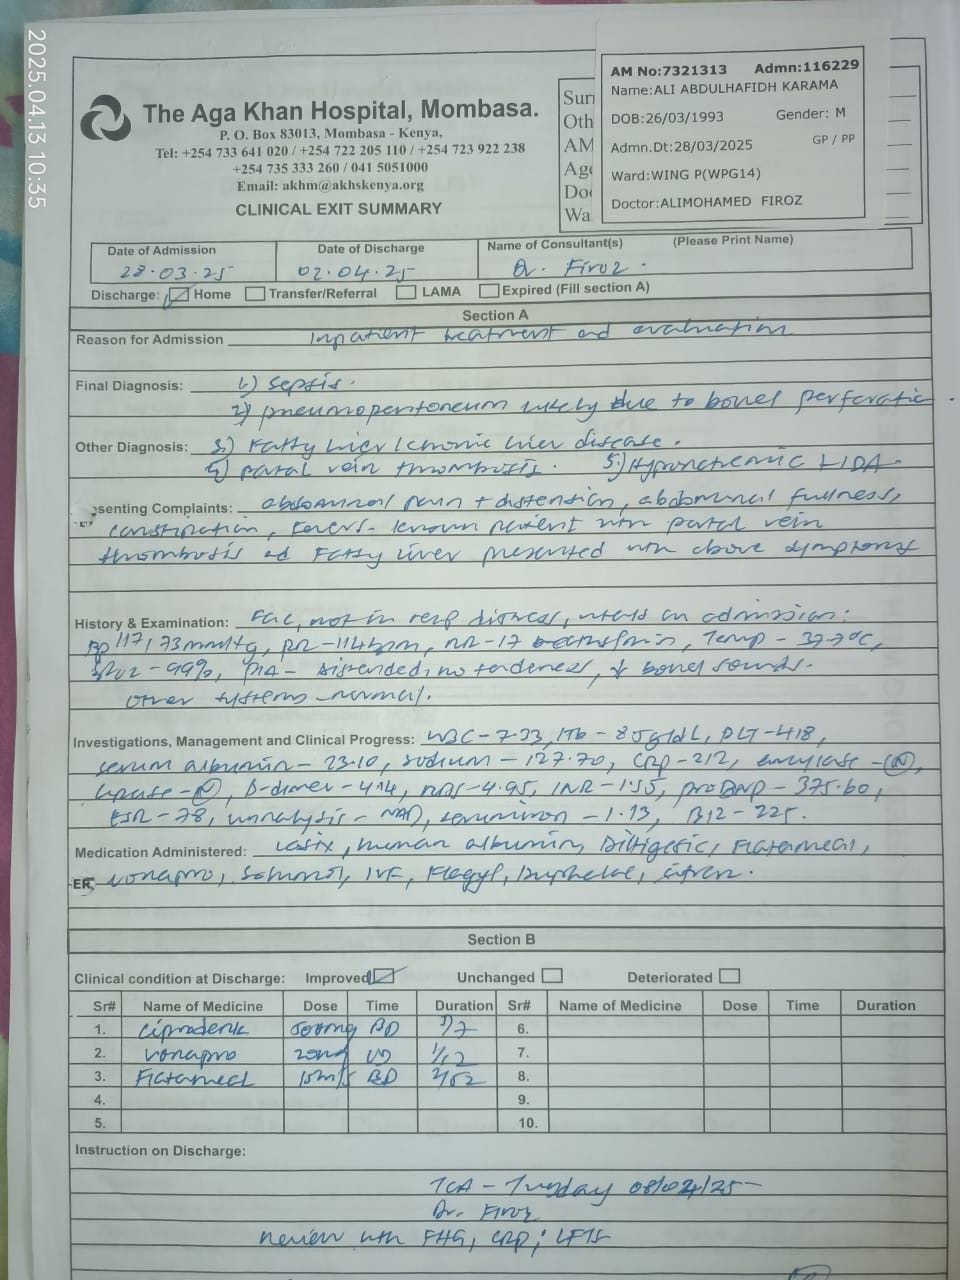 2025.04.13 10:35
AM No:7321313 Admn:116229
Name:ALI ABDULHAFIDH KARAMA
DOB:26/03/1993 Gender: M
Admn.Dt:28/03/2025 GP / PP
Ward:WING P(WPG14)
Doctor:ALIMOHAMED FIROZ
Sur
Oth
AM
Age
Do
Wa
The Aga Khan Hospital, Mombasa.
P. O. Box 83013, Mombasa - Kenya,
Tel: +254 733 641 020 / +254 722 205 110 / +254 723 922 238
+254 735 333 260 / 041 5051000
Email: akhm@akhskenya.org
CLINICAL EXIT SUMMARY
Date of Admission Date of Discharge Name of Consultant(s) (Please Print Name)
28.03.25 02.04.25 Dr. Firoz.
Discharge: Home Transfer/Referral LAMA Expired (Fill section A)
Section A
Reason for Admission Inpatient treatment and evaluation
Final Diagnosis: 1) Sepsis.
2) pneumoperitoneum likely due to bowel perforatio
Other Diagnosis: 3.) Fatty liver / chronic liver disease.
4) portal vein thrombosis. 5.) Hyponatremic
senting Complaints: abdominal pain + distension, abdominal fullness,
constipation, fevers - known patient with portal vein
thrombosis ad Fatty liver presented with above symptoms
History & Examination: FGC, not in resp distress, vitals on admission:
BP 117/73mmHg, PR-114bpm, RR-17 breaths/min, Temp - 37.7°C,
SPO2 - 99%, P/A - distended, no tenderness, bowel sounds.
Other systems normal.
Investigations, Management and Clinical Progress: WBC-7.33, Hb - 8.5g/dL, PLT-418,
serum albumin - 23.10, sodium - 127.70, CRP-212, amylase - (N),
lipase - (N), D-dimer - 4.14, INR - 1.55, proBNP - 375.60,
ESR - 78, urinalysis - NAD, serum iron - 1.13, B12 - 225.
Medication Administered: Lasix, human albumin,
ER Vonapro, IVF, Flagyl, Duphalac,
Section B
Clinical condition at Discharge: Improved Unchanged Deteriorated
Sr# Name of Medicine Dose Time Duration Sr# Name of Medicine Dose Time Duration
1. 500mg BD 6.
2. Vonapro 20mg 1/12 7.
3. BD 2/52 8.
4. 9.
5. 10.
Instruction on Discharge:
TCA - Tuesday 08/04/25
Dr. Firoz
Review with FHG, CRP, LFTS